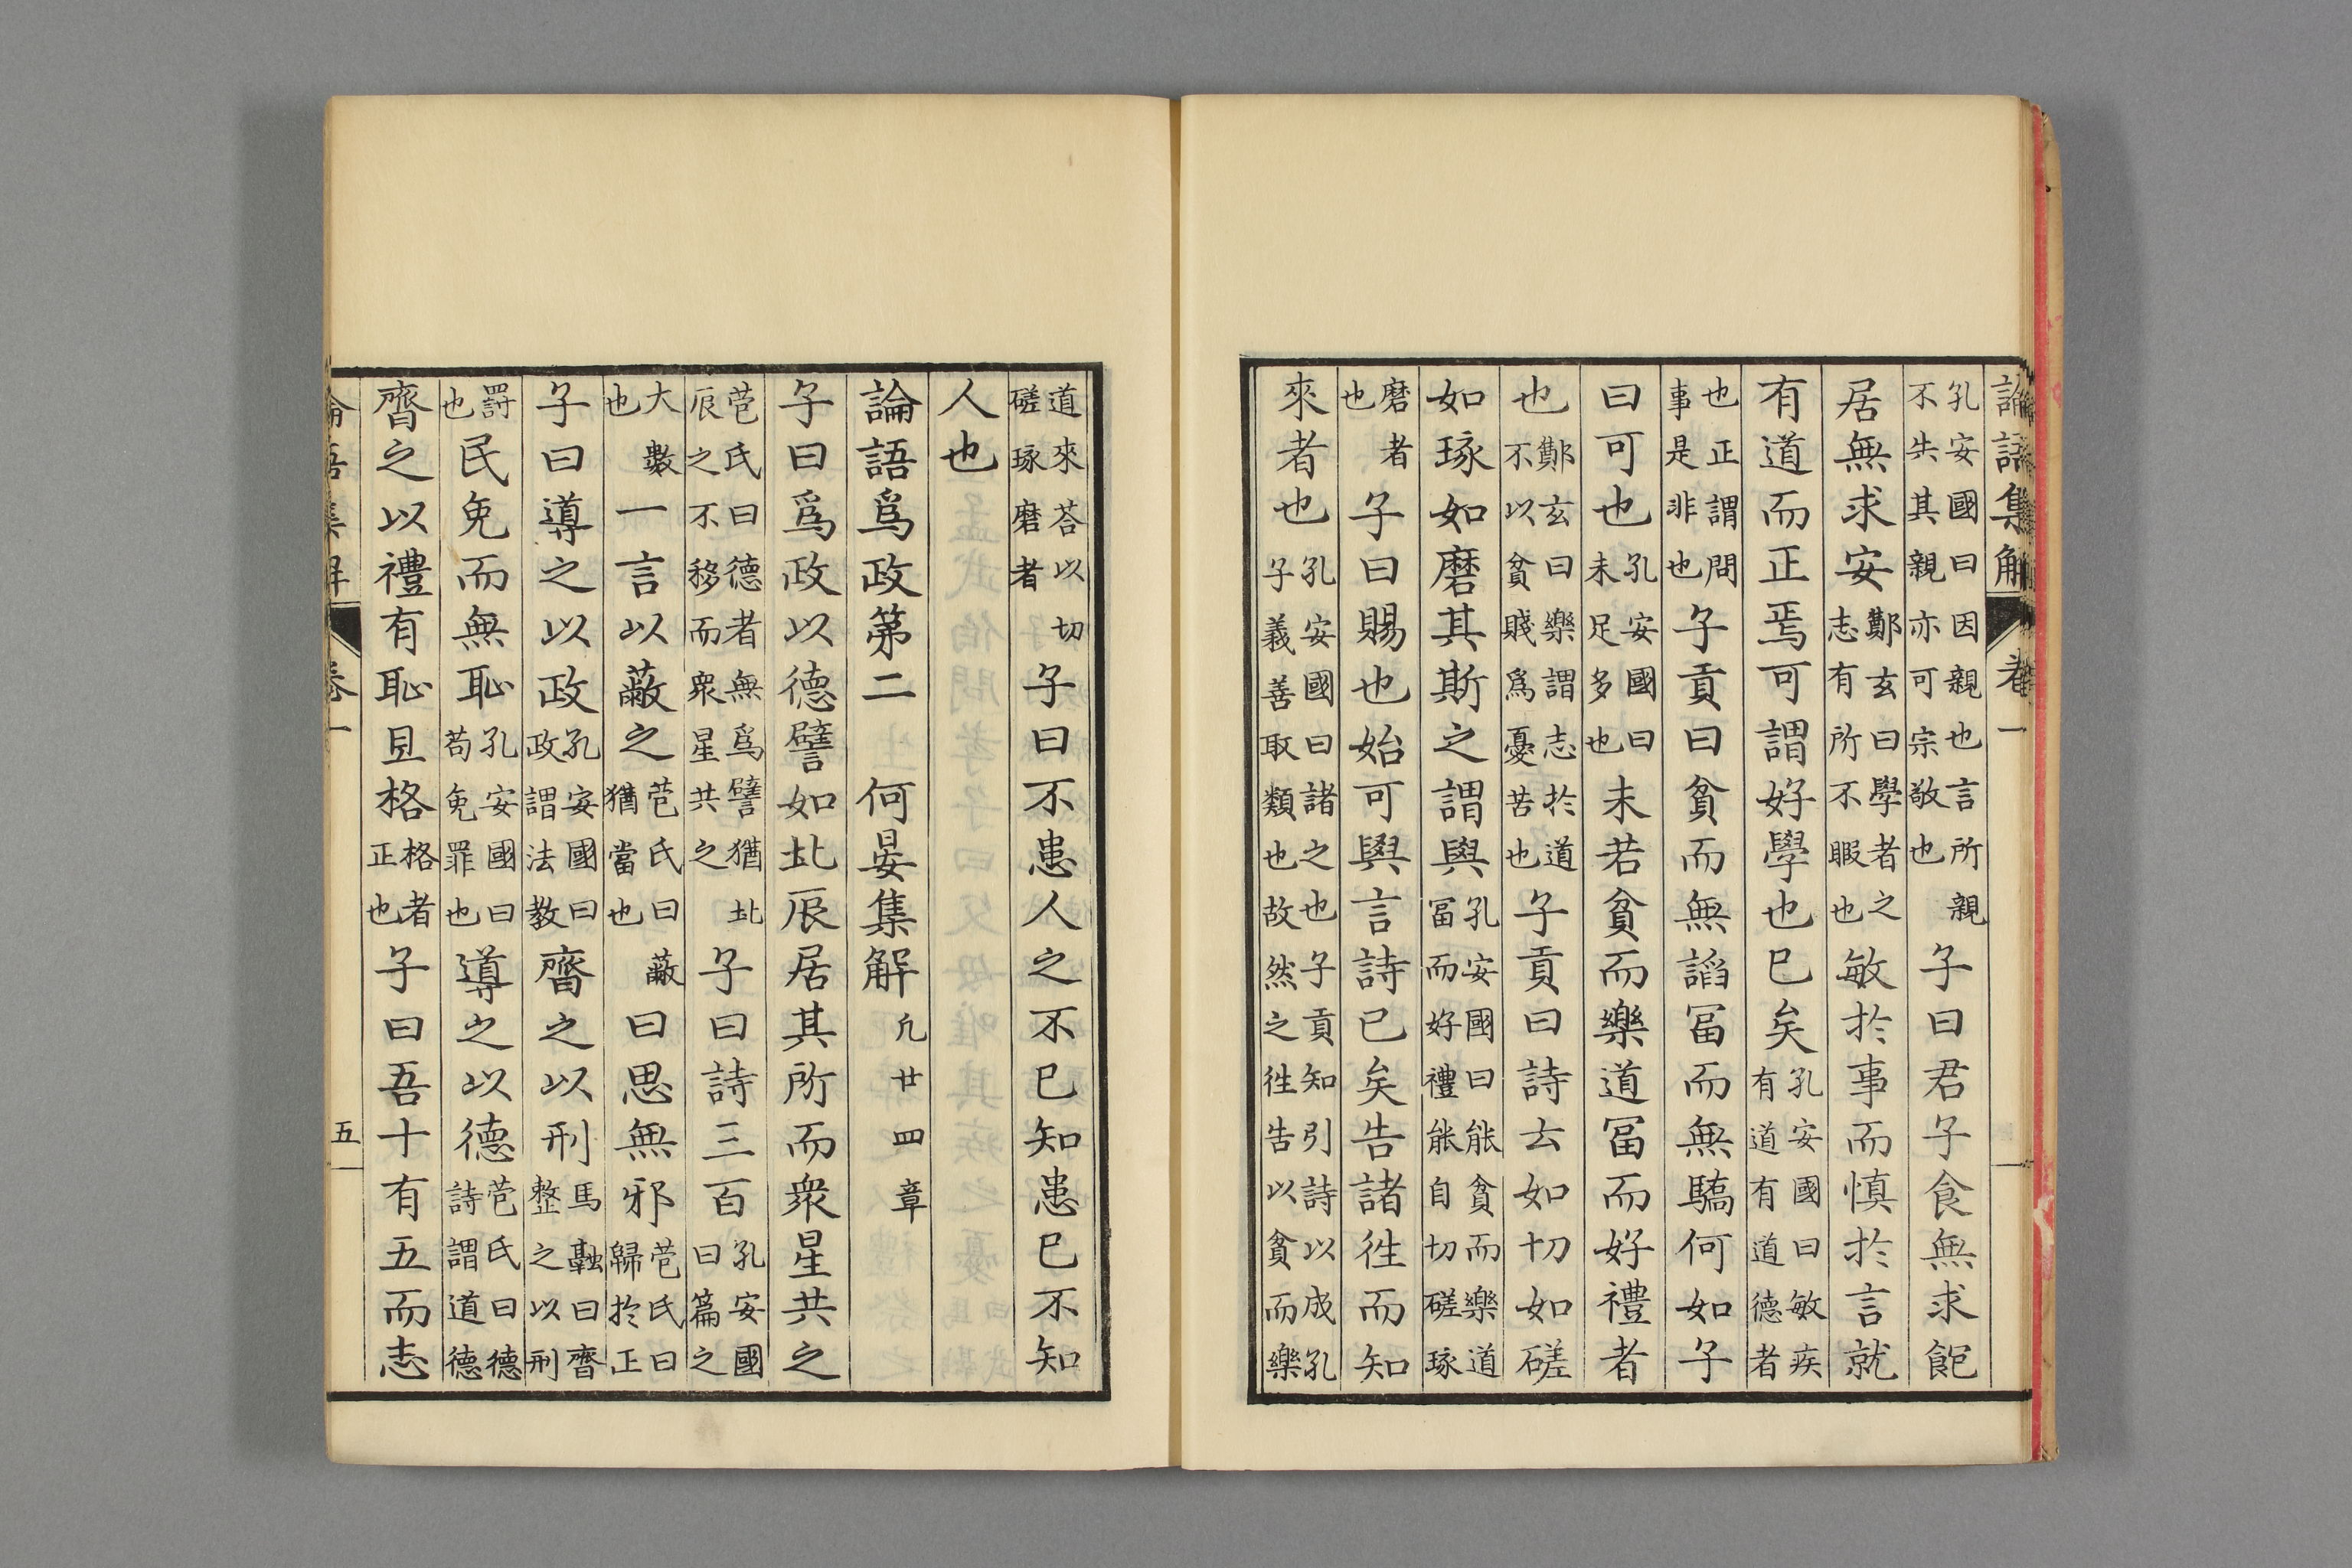 論語集解 卷一
孔安國曰因親也言所親不失其親亦可宗敬也子曰君子食無求飽
居無求安鄭玄曰學者之志有所不暇也敏於事而慎於言就
有道而正焉可謂好學也已矣孔安國曰敏疾有道有道德者
也正謂問事是非也子貢曰貧而無諂冨而無驕何如子
曰可也孔安國曰未足多也未若貧而樂道冨而好禮者
也鄭玄曰樂謂志於道不以貧賤爲憂苦也子貢曰詩云如切如磋
如琢如磨其斯之謂與孔安國曰能貧而樂道冨而好禮能自切磋琢
磨者也子曰賜也始可與言詩已矣告諸徃而知
來者也孔安國曰諸之也子貢知引詩以成孔子義善取類也故然之徃告以貧而樂
道來荅以切磋琢磨者子曰不患人之不已知患已不知
人也
論語爲政第二 何晏集解 凡廿四章
子曰爲政以德譬如北辰居其所而衆星共之
苞氏曰德者無爲譬猶北辰之不移而衆星共之子曰詩三百孔安國曰篇之
大數也一言以蔽之苞氏曰蔽猶當也曰思無邪苞氏曰歸於正
子曰導之以政孔安國曰政謂法教齊之以刑馬融曰齊整之以刑
罰也民免而無恥孔安國曰苟免罪也導之以德苞氏曰德謂道德
齊之以禮有恥且格格者正也子曰吾十有五而志
論語集解 卷一 五